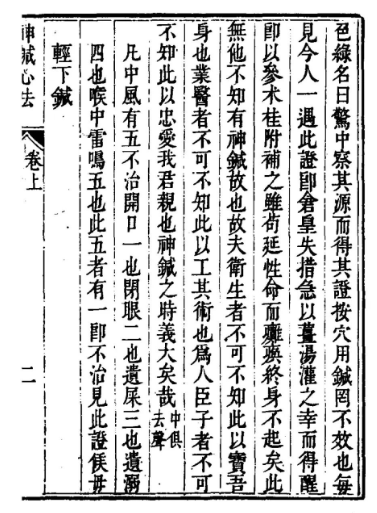 色綠名日驚中察其源而得其證按穴用鍼罔不效也每
見今人一遇此證卽倉皇失措急以薑湯灌之幸而得醒
卽以參朮桂附補之雖苟延性命而癱瘓終身不起矣此
無他不知有神鍼故也故夫衛生者不可不知此以寶吾
身也業醫者不可不知此以工其術也爲人臣子者不可
不知此以忠愛我君親也神鍼之時義大矣哉中俱去聲
凡中風有五不治開口一也閉眼二也遺屎三也遺溺
四也喉中雷鳴五也此五者有一卽不治見此證候毋
輕下鍼
神鍼心法
卷上
二